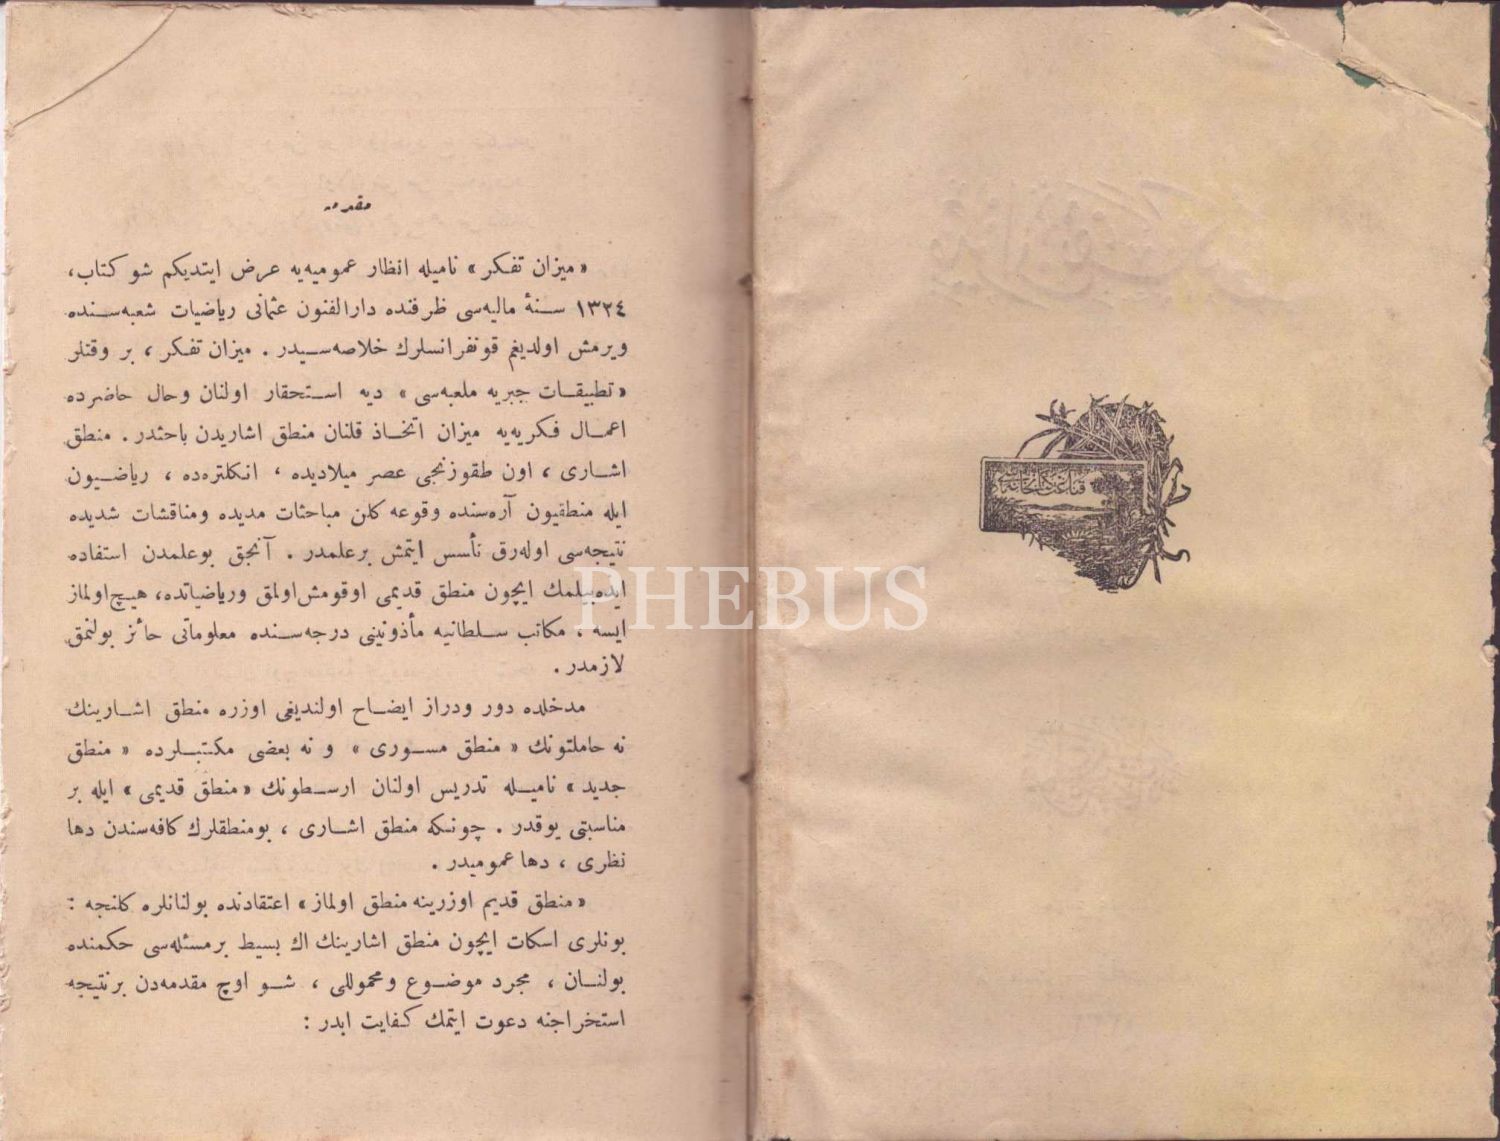 قناعت كتابخانه‌سی
مقدمه
« ميزان تفكر » ناميله انظار عموميه‌يه عرض ايتديكم شو كتاب،
١٣٢٤ سنهٔ ماليه‌سى ظرفنده دارالفنون عثمانى رياضيات شعبه‌سنده
ويرمش اولديغم قونفرانسلرك خلاصه‌سيدر . ميزان تفكر ، بر وقتلر
« تطبيقات جبريه ملعبه‌سى » ديه استحقار اولنان وحال حاضرده
اعمال فكريه‌يه ميزان اتخاذ قلنان منطق اشاريدن باحثدر . منطق
اشارى ، اون طقوزنجى عصر ميلاديده ، انكلتره‌ده ، رياضيون
ايله منطقيون آره‌سنده وقوعه كلن مباحثات مديده ومناقشات شديده
نتيجه‌سى اوله‌رق تأسس ايتمش برعلمدر . آنجق بوعلمدن استفاده
ايده‌بيلمك ايچون منطق قديمى اوقومش‌اولمق ورياضياتده، هيچ‌اولماز
ايسه ، مكاتب سلطانيه مأذونيتى درجه‌سنده معلوماتى حائز بولنمق
لازمدر .
مدخلده دور ودراز ايضاح اولنديغى اوزره منطق اشارينك
نه حاملتونك « منطق مسورى » و نه بعضى مكتبلرده « منطق
جديد » ناميله تدريس اولنان ارسطونك « منطق قديمى » ايله بر
مناسبتى يوقدر . چونكه منطق اشارى ، بومنطقلرك كافه‌سندن دها
نظرى ، دها عموميدر .
« منطق قديم اوزرينه منطق اولماز » اعتقادنده بولنانلره كلنجه :
بونلرى اسكات ايچون منطق اشارينك اك بسيط برمسئله‌سى حكمنده
بولنان ، مجرد موضوع ومحموللى ، شو اوچ مقدمه‌دن برنتيجه
استخراجنه دعوت ايتمك كفايت ايدر :
PHEBUS